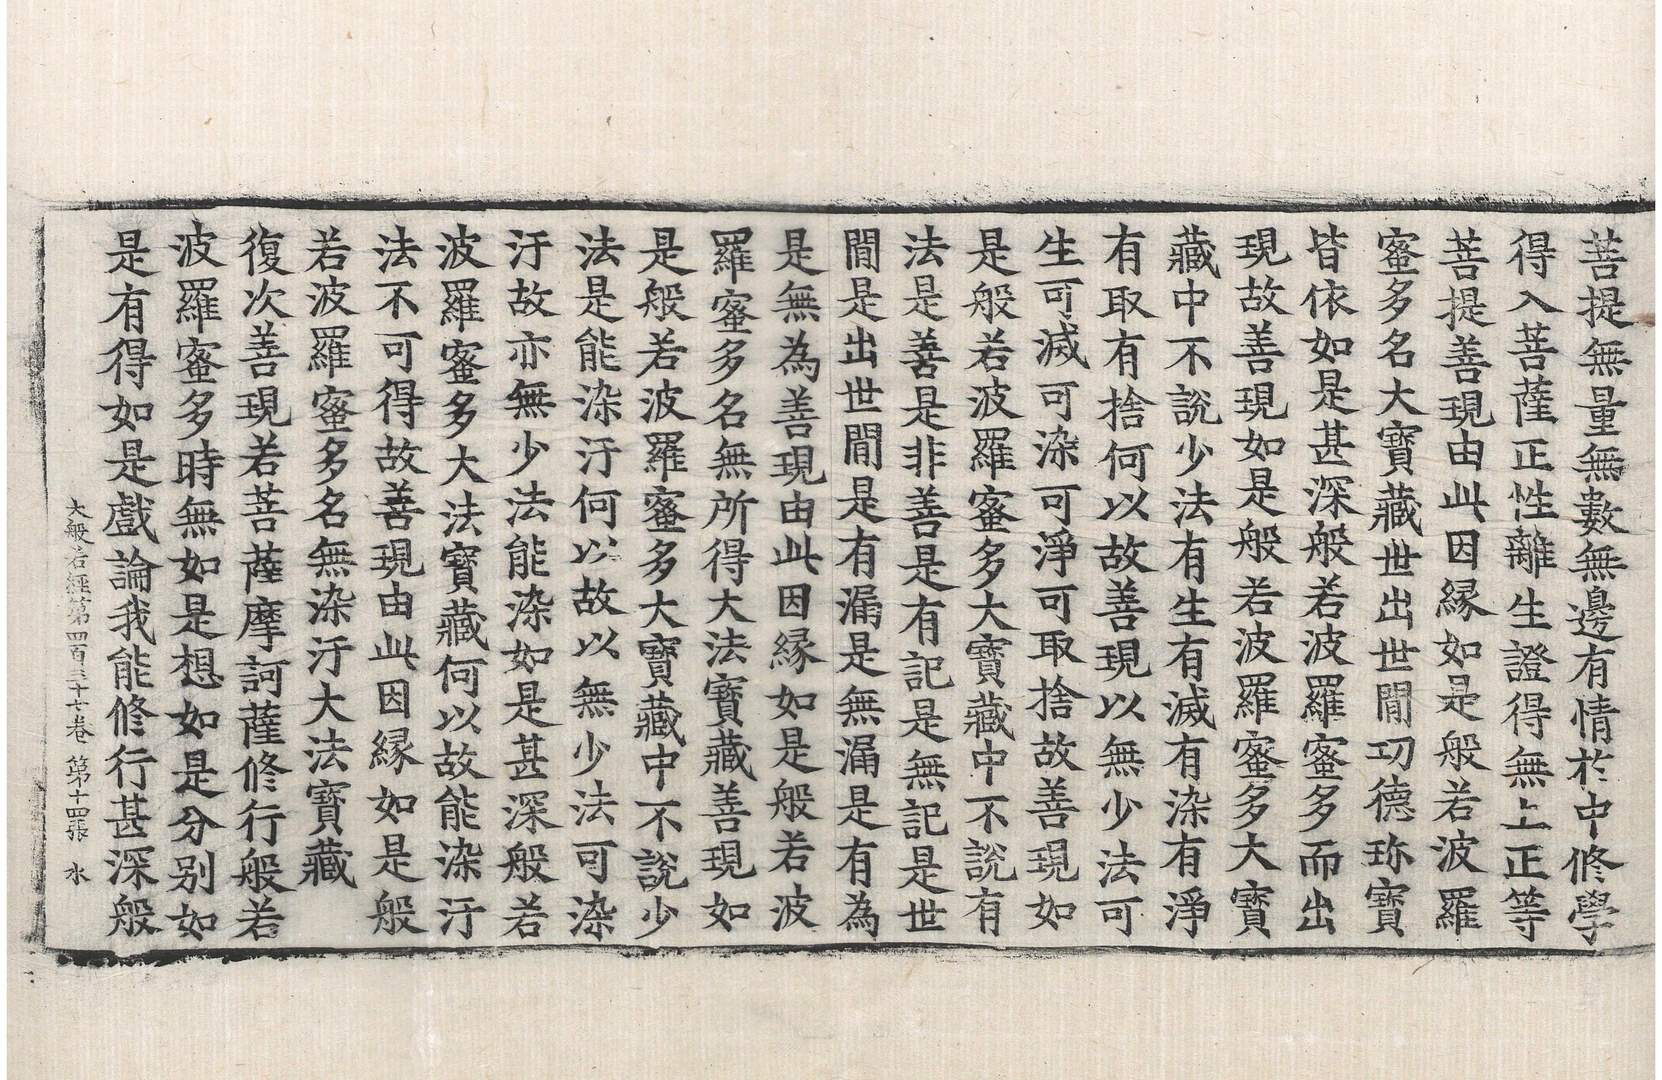 菩提無量無數無邊有情於中修學
得入菩薩正性離生證得無上正等
菩提善現由此因縁如是般若波羅
蜜多名大寶藏世出世閒㓛德珎寶
皆依如是甚深般若波羅蜜多而出
現故善現如是般若波羅蜜多大寶
藏中不說少法有生有滅有染有淨
有取有捨何以故善現以無少法可
生可滅可染可淨可取捨故善現如
是般若波羅蜜多大寶藏中不說有
法是善是非善是有記是無記是世
閒是出世閒是有漏是無漏是有為
是無為善現由此因縁如是般若波
羅蜜多名無所得大法寶藏善現如
是般若波羅蜜多大寶藏中不說少
法是能染汙何以故以無少法可染
汙故亦無少法能染如是甚深般若
波羅蜜多大法寶藏何以故能染汙
法不可得故善現由此因縁如是般
若波羅蜜多名無染汙大法寶藏
復次善現若菩薩摩訶薩修行般若
波羅蜜多時無如是想如是分別如
是有得如是戲論我能修行甚深般
大般若經第四百三十七卷 第十四張 水